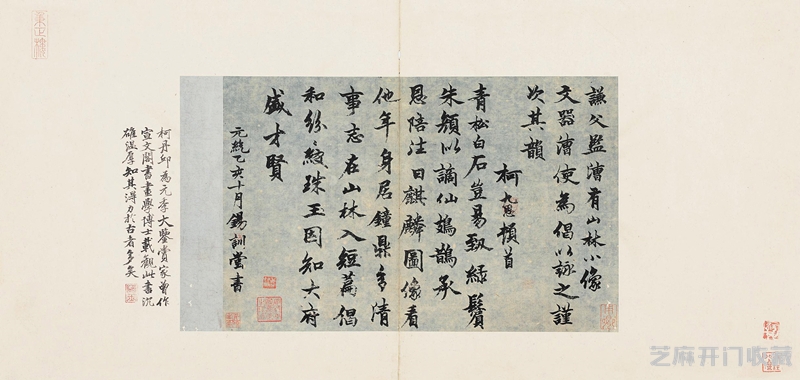 謙父監漕有山林小像
文器漕使為倡以詠之謹
次其韻
柯九思頓首
青松白石豈易致綠鬢
朱顏以謫仙鳷鵲承
恩陪注日麒麟圖像看
他年身居鐘鼎多清
事志在山林入短篇倡
和紛紛珠玉因知大府
盛才賢
元統乙亥十月錫訓堂書
柯丹邱為元季大鑒賞家曾作
宣文閣書畫學博士載觀此書沉
雄溫厚知其得力於古者多矣
芝麻开门收藏